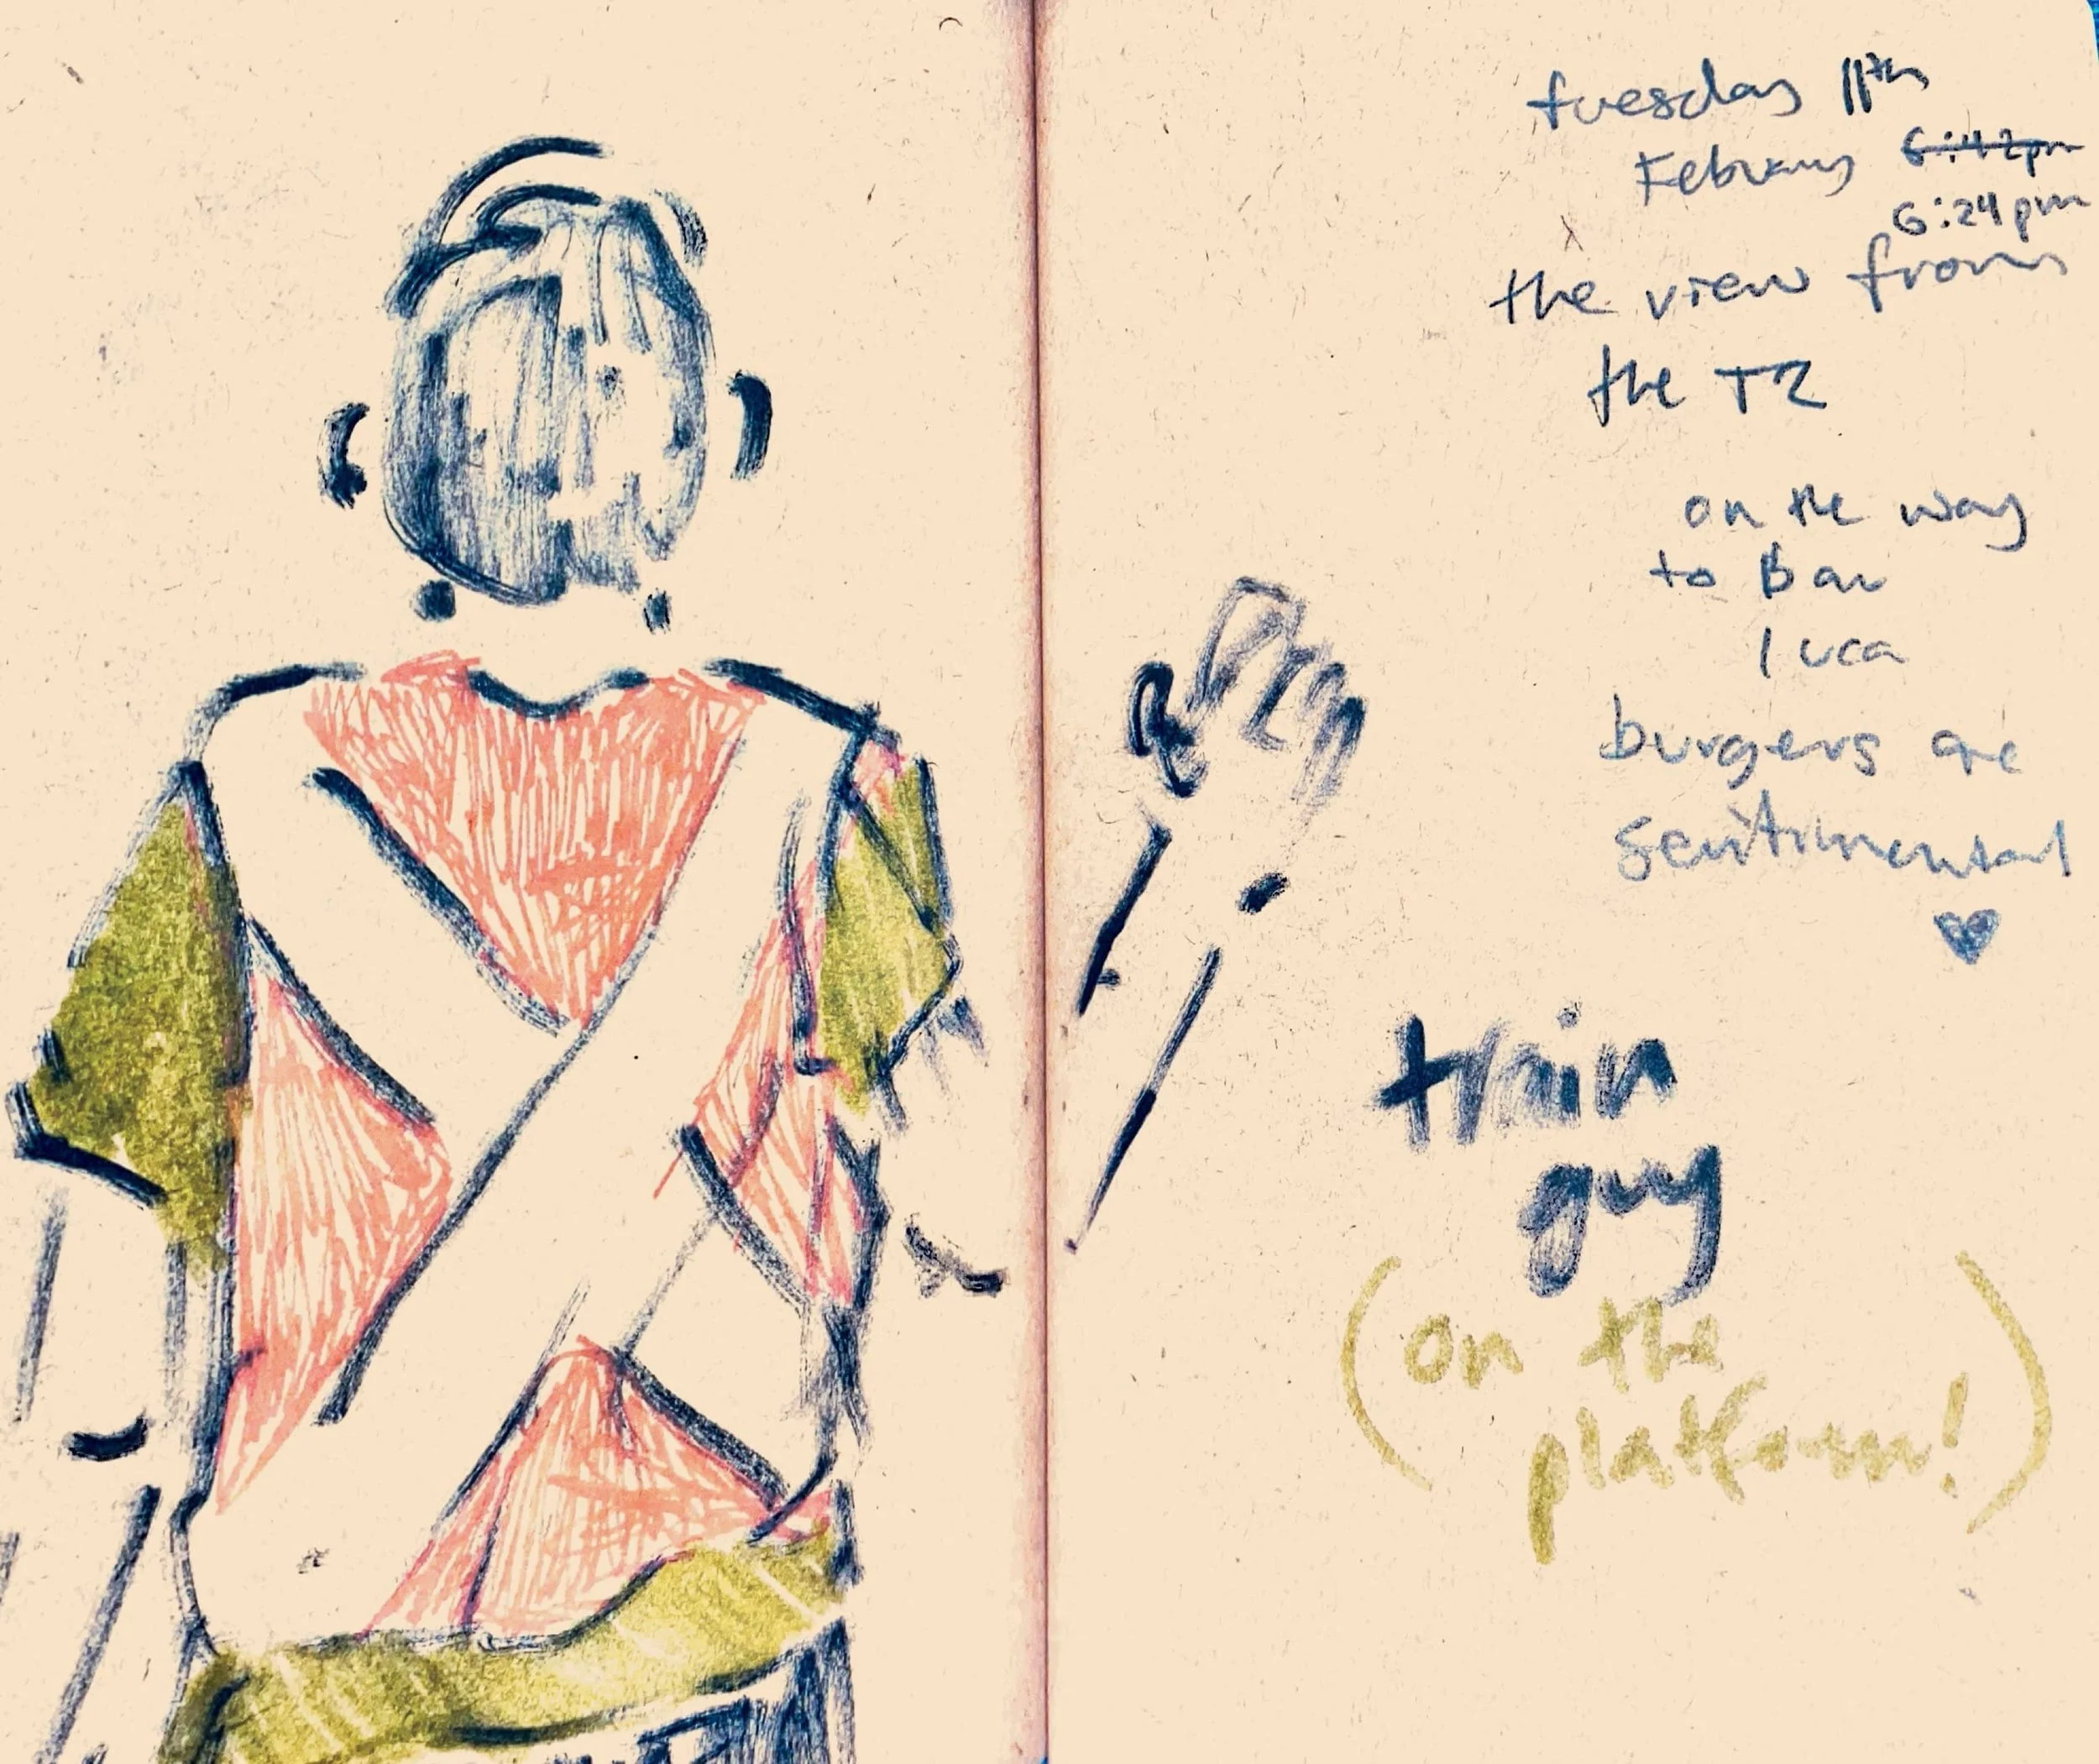 tuesday 11th
February 6:42pm
6:24pm
the view from
the T2
on the way
to Bar
luca
burgers are
sentimental
train
guy
(on the
platform!)